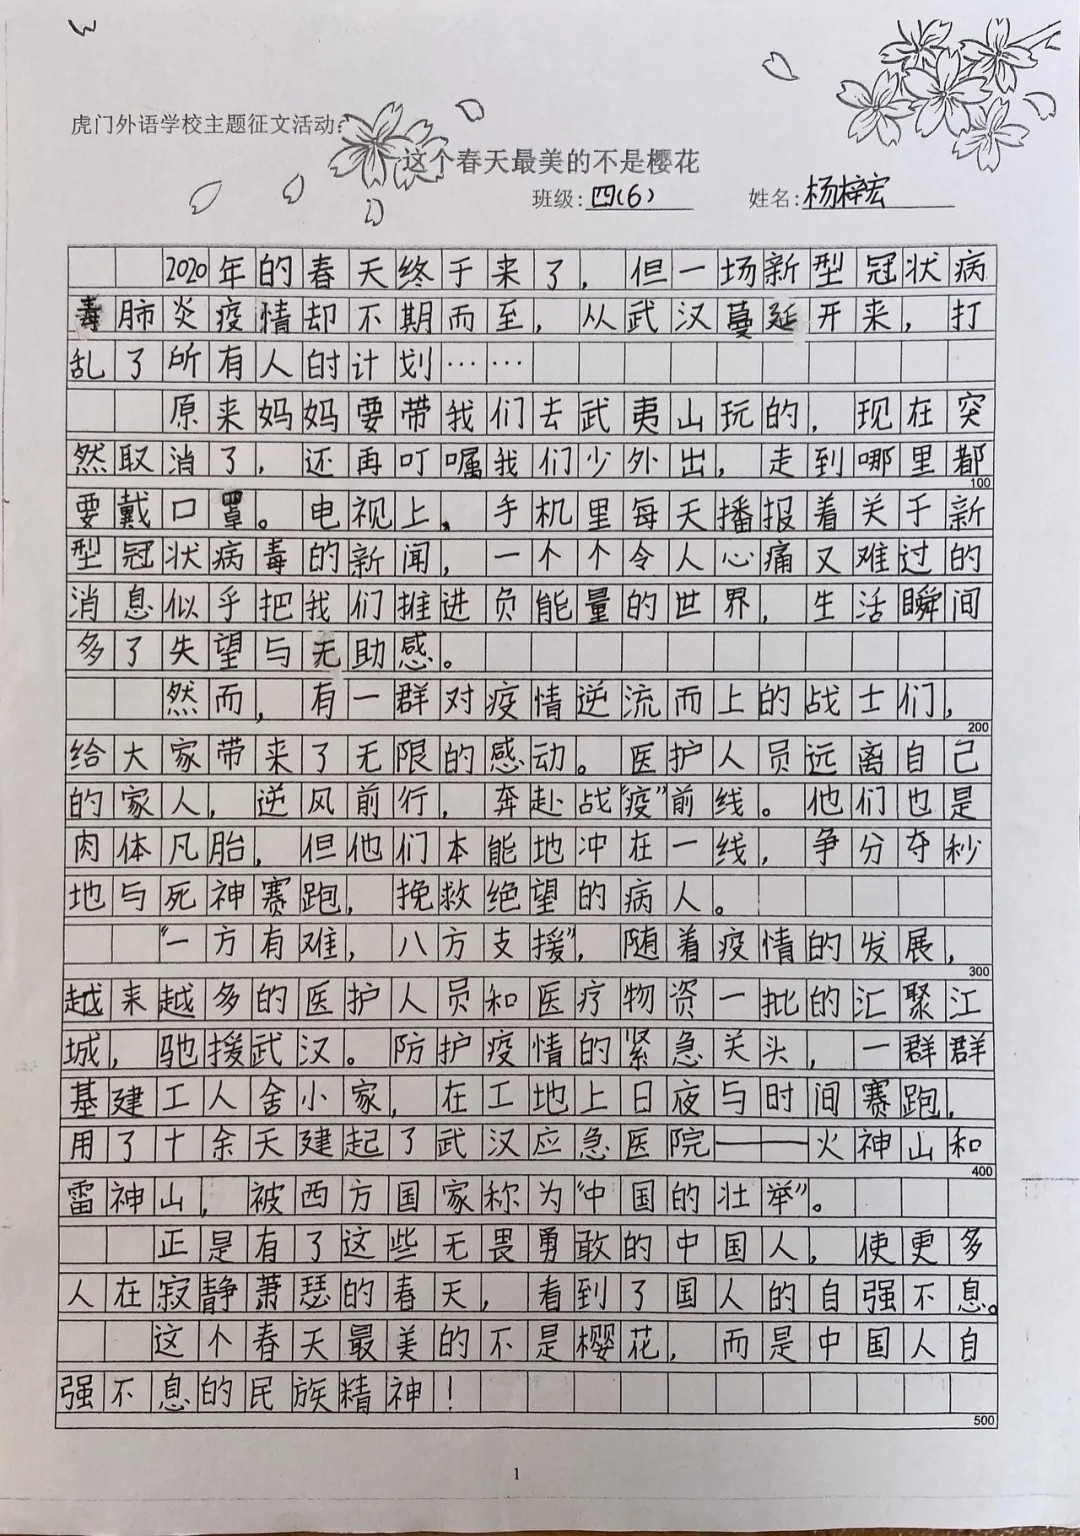 虎门外语学校主题征文活动：
这个春天最美的不是樱花
班级：四(6) 姓名：杨梓宏
2020年的春天终于来了，但一场新型冠状病
毒肺炎疫情却不期而至，从武汉蔓延开来，打
乱了所有人的计划……
原来妈妈要带我们去武夷山玩的，现在突
然取消了，还再叮嘱我们少外出，走到哪里都
100
要戴口罩。电视上、手机里每天播报着关于新
型冠状病毒的新闻，一个个令人心痛又难过的
消息似乎把我们推进负能量的世界，生活瞬间
多了失望与无助感。
然而，有一群对疫情逆流而上的战士们，
200
给大家带来了无限的感动。医护人员远离自己
的家人，逆风前行，奔赴战“疫”前线。他们也是
肉体凡胎，但他们本能地冲在一线，争分夺秒
地与死神赛跑，挽救绝望的病人。
“一方有难，八方支援”，随着疫情的发展，
300
越来越多的医护人员和医疗物资一批的汇聚江
城，驰援武汉。防护疫情的紧急关头，一群群
基建工人舍小家，在工地上日夜与时间赛跑，
用了十余天建起了武汉应急医院——火神山和
400
雷神山，被西方国家称为“中国的壮举”。
正是有了这些无畏勇敢的中国人，使更多
人在寂静萧瑟的春天，看到了国人的自强不息。
这个春天最美的不是樱花，而是中国人自
强不息的民族精神！
500
1